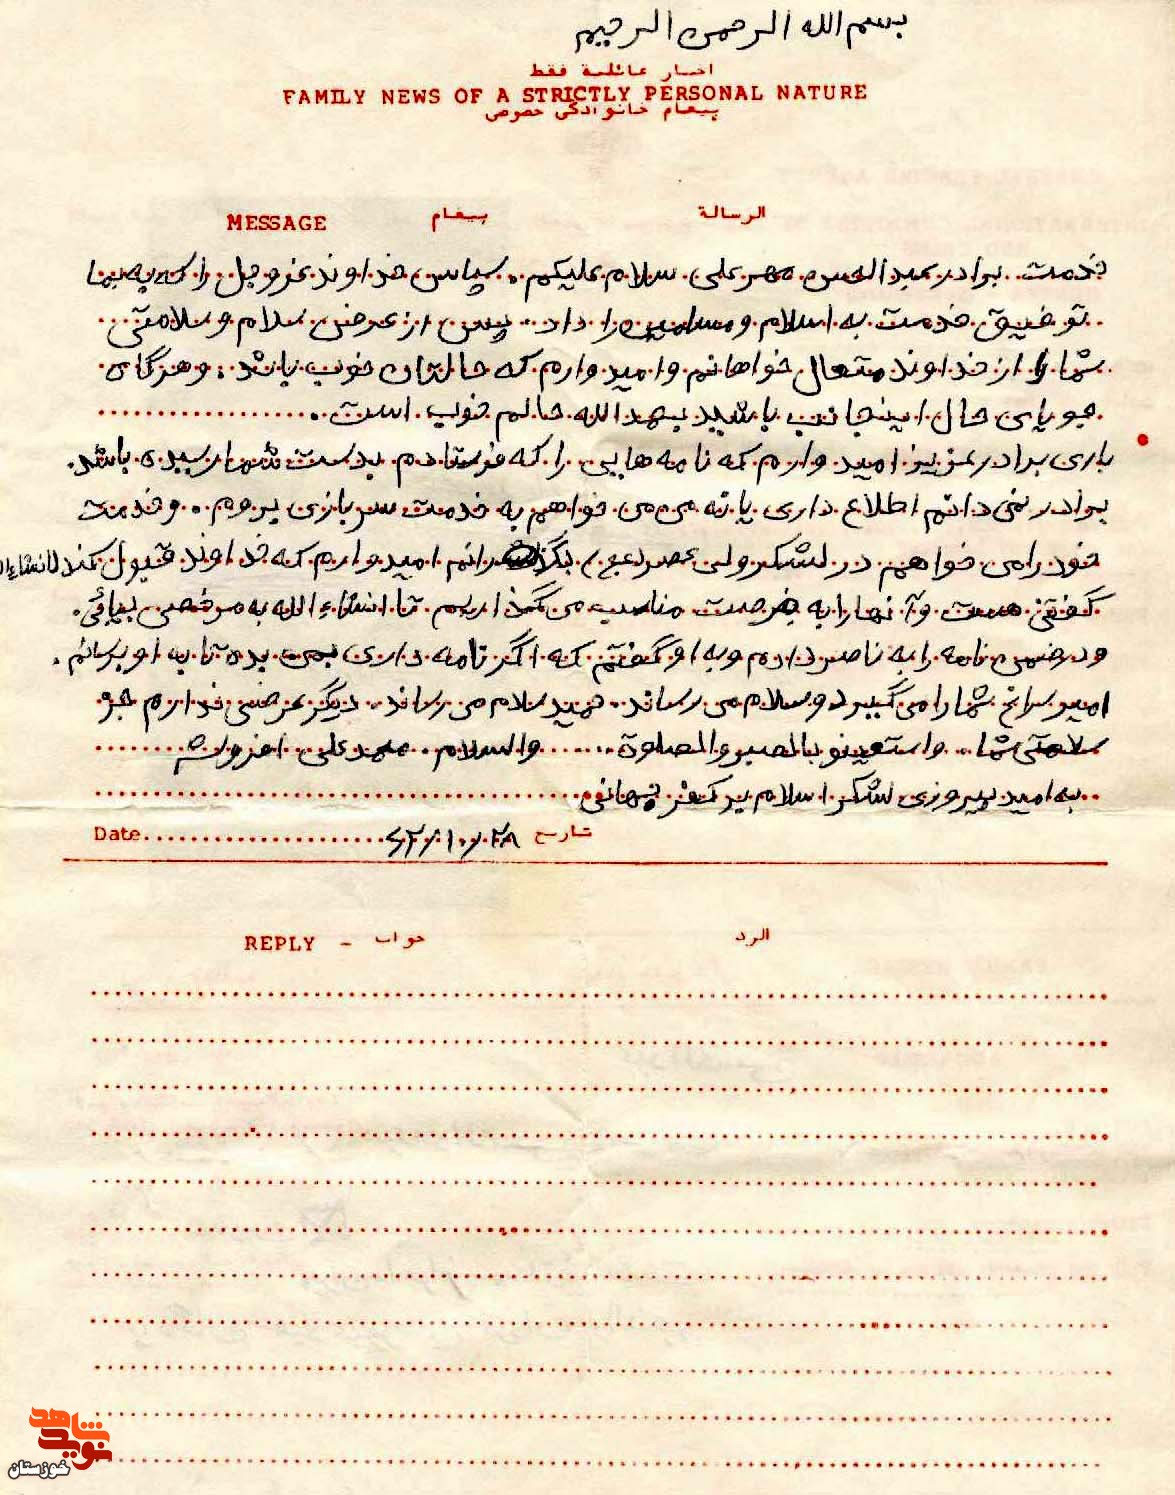 بسم الله الرحمن الرحیم
اخبار عائلیة فقط
FAMILY NEWS OF A STRICTLY PERSONAL NATURE
پیغام خانوادگی خصوصی
الرسالة پیغام MESSAGE
خدمت برادر عبدالحسن مهرعلی سلام علیکم. سپاس خداوند عزوجل را که به شما
توفیق خدمت به اسلام و مسلمین را داد. پس از عرض سلام و سلامتی
شما را از خداوند متعال خواهانم و امیدوارم که حالتان خوب باشد. و هرگاه
جویای حال اینجانب باشید بحمدالله حالم خوب است.
باری برادر عزیز امیدوارم که نامه هایی را که فرستادم بدست شما رسیده باشد.
برادر نمی دانم اطلاع داری یا نه می خواهم به خدمت سربازی بروم. و خدمت
خود را می خواهم در لشکر ولی عصر (عج) بگذرانم امیدوارم که خداوند قبول کند انشاءا
گفتنی هست و آنها را به فرصت مناسب می گذاریم تا انشاءالله به مرخصی بیایی.
و در ضمن نامه را به ناصر دادم و به او گفتم که اگر نامه داری بمن بده تا به او برسانم.
امیر سراغ شما را می گیرد و سلام می رساند. حمید سلام می رساند. دیگر عرضی ندارم جز
سلامتی شما. واستعینو بالصبر والصلوة والسلام. محمدعلی
به امید پیروزی لشکر اسلام بر کفر جهانی
تاریخ ۶۲/۱۰/۲۸ Date
الرد جواب - REPLY
نوید شاهد
خوزستان